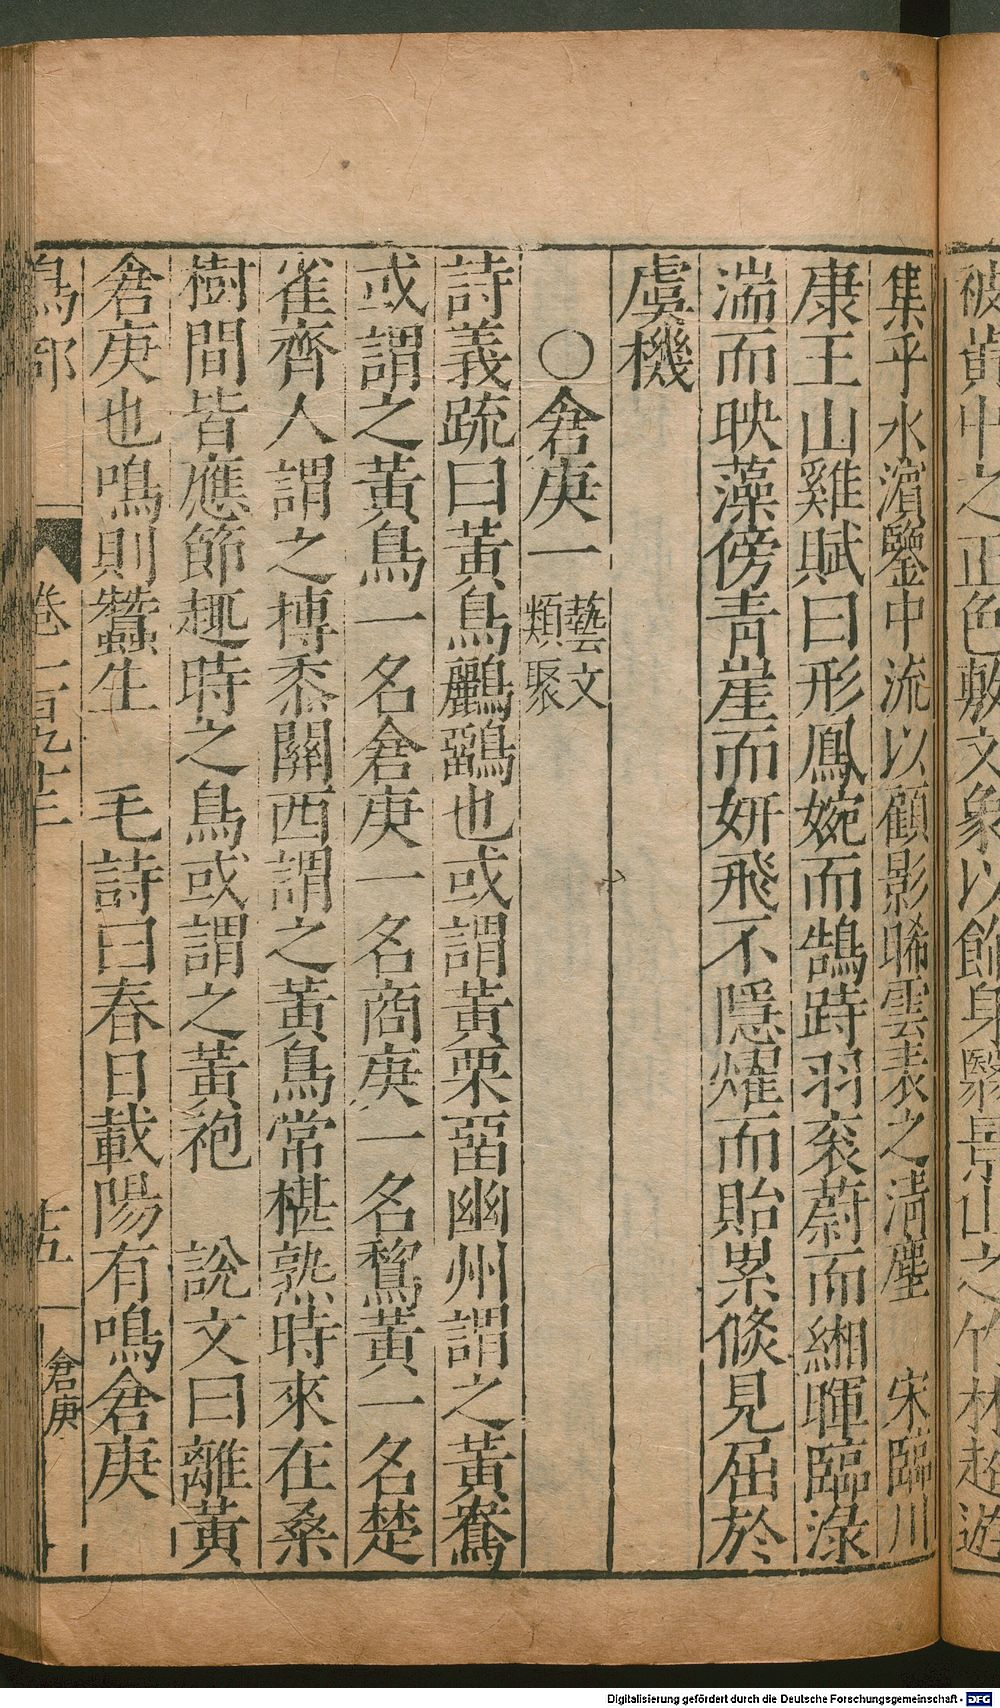 被黄中之正色敷文象以飾身翳景山之竹林超遊
集乎水濱鑒中流以顧影晞雲表之清塵　宋臨川
康王山雞賦曰形鳳婉而鵠跱羽衮蔚而緗暉臨渌
湍而映藻傍青崖而妍飛不隱燿而貽累倐見屈於
虞機
〇倉庚一藝文類聚
詩義疏曰黄鳥鸝鶹也或謂黄栗畱幽州謂之黄鶩
或謂之黄鳥一名倉庚一名商庚一名鵹黄一名楚
雀齊人謂之摶黍關西謂之黄鳥常椹熟時來在桑
樹間皆應節趣時之鳥或謂之黄袍　說文曰離黄
倉庚也鳴則蠶生　毛詩曰春日載陽有鳴倉庚
鳥部　卷一百九十三　十五　倉庚
Digitalisierung gefördert durch die Deutsche Forschungsgemeinschaft - DFG